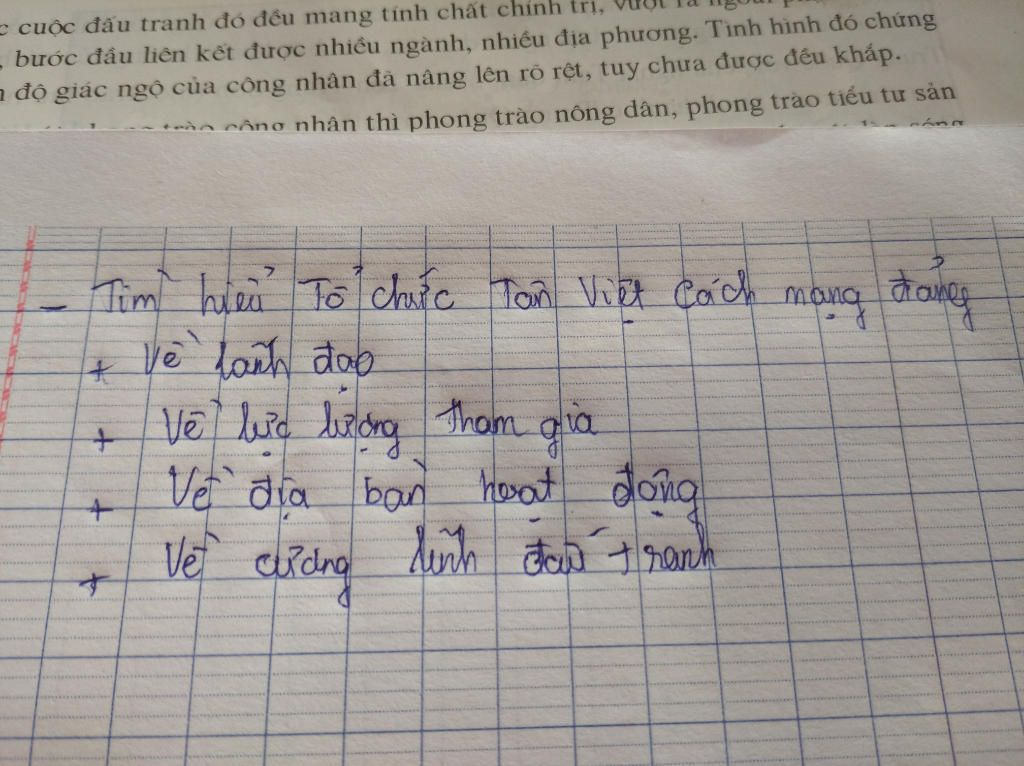 cuộc đấu tranh đó đều mang tính chất chính trị, vượt ra ngoài
bước đầu liên kết được nhiều ngành, nhiều địa phương. Tình hình đó chứng
độ giác ngộ của công nhân đã nâng lên rõ rệt, tuy chưa được đều khắp.
trào công nhân thì phong trào nông dân, phong trào tiểu tư sản
- Tìm hiểu Tổ chức Tân Việt Cách mạng đảng
+ Về lãnh đạo
+ Về lực lượng tham gia
+ Về địa bàn hoạt động
+ Về cương lĩnh đấu tranh